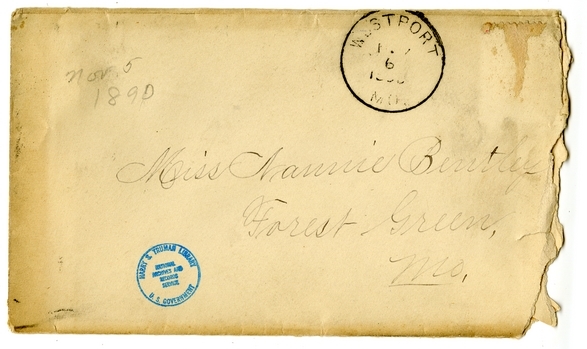 Nov. 5
1890
WESTPORT
6
Miss Nannie Bentley
Forest Green,
Mo.
HARRY S. TRUMAN LIBRARY
NATIONAL
ARCHIVES AND
RECORDS
SERVICE
U. S. GOVERNMENT